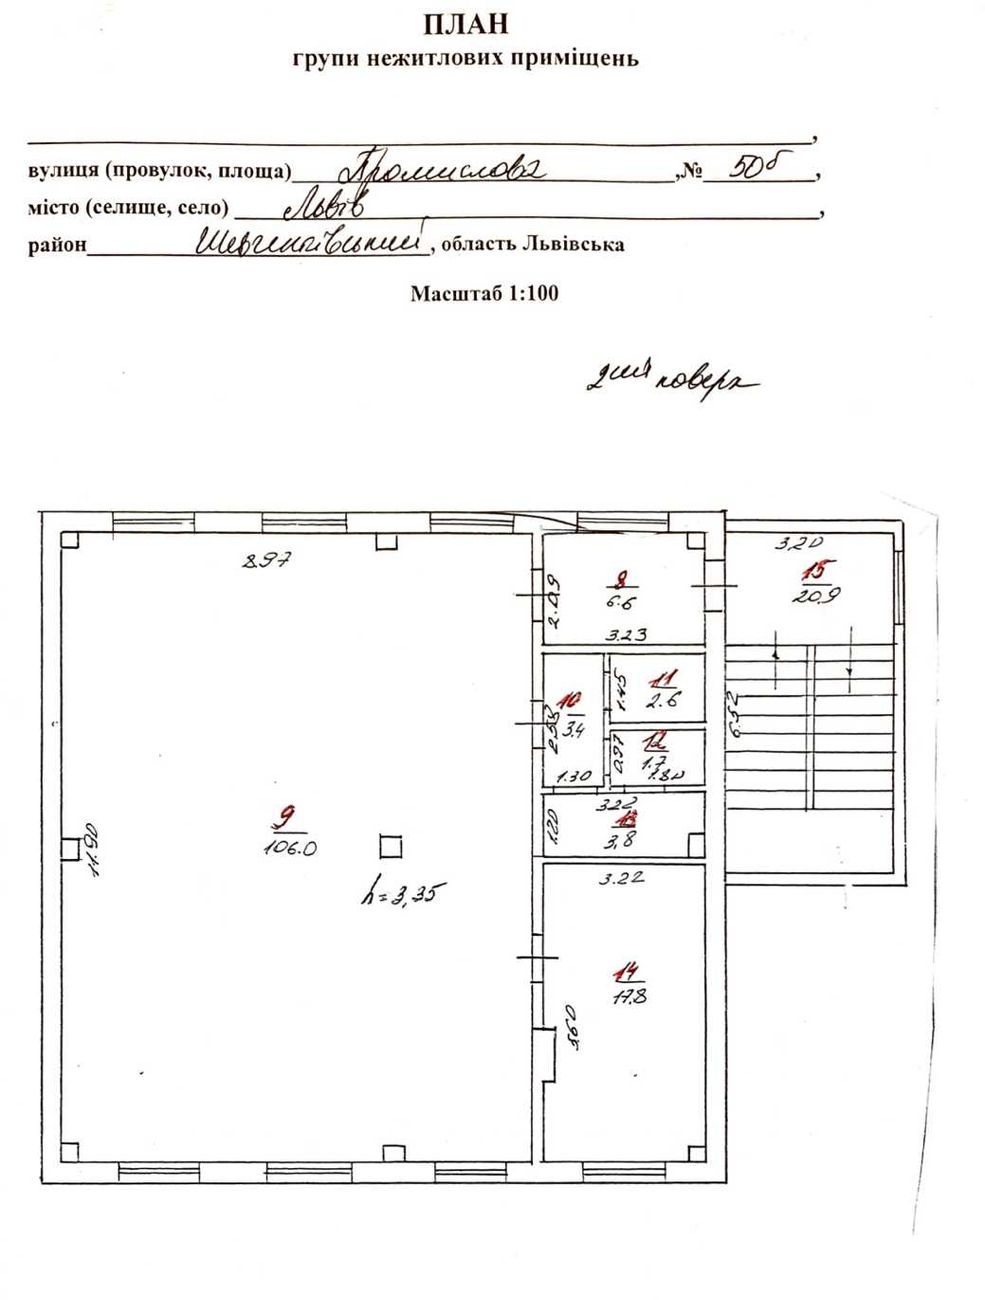 ПЛАН
групи нежитлових приміщень
,
вулиця (провулок, площа) Промислова ,№ 50б ,
місто (селище, село) Львів ,
район Шевченківський , область Львівська
Масштаб 1:100
2ий поверх
8.97
3,20
15
20.9
8
6.6
2.09
3.23
11
2.6
1.45
10
3.4
2.53
1.30
6.52
12
1.7
0.97
1.80
3.22
13
3,8
1.20
9
106.0
11.90
h=3,35
3.22
14
17.8
5.60